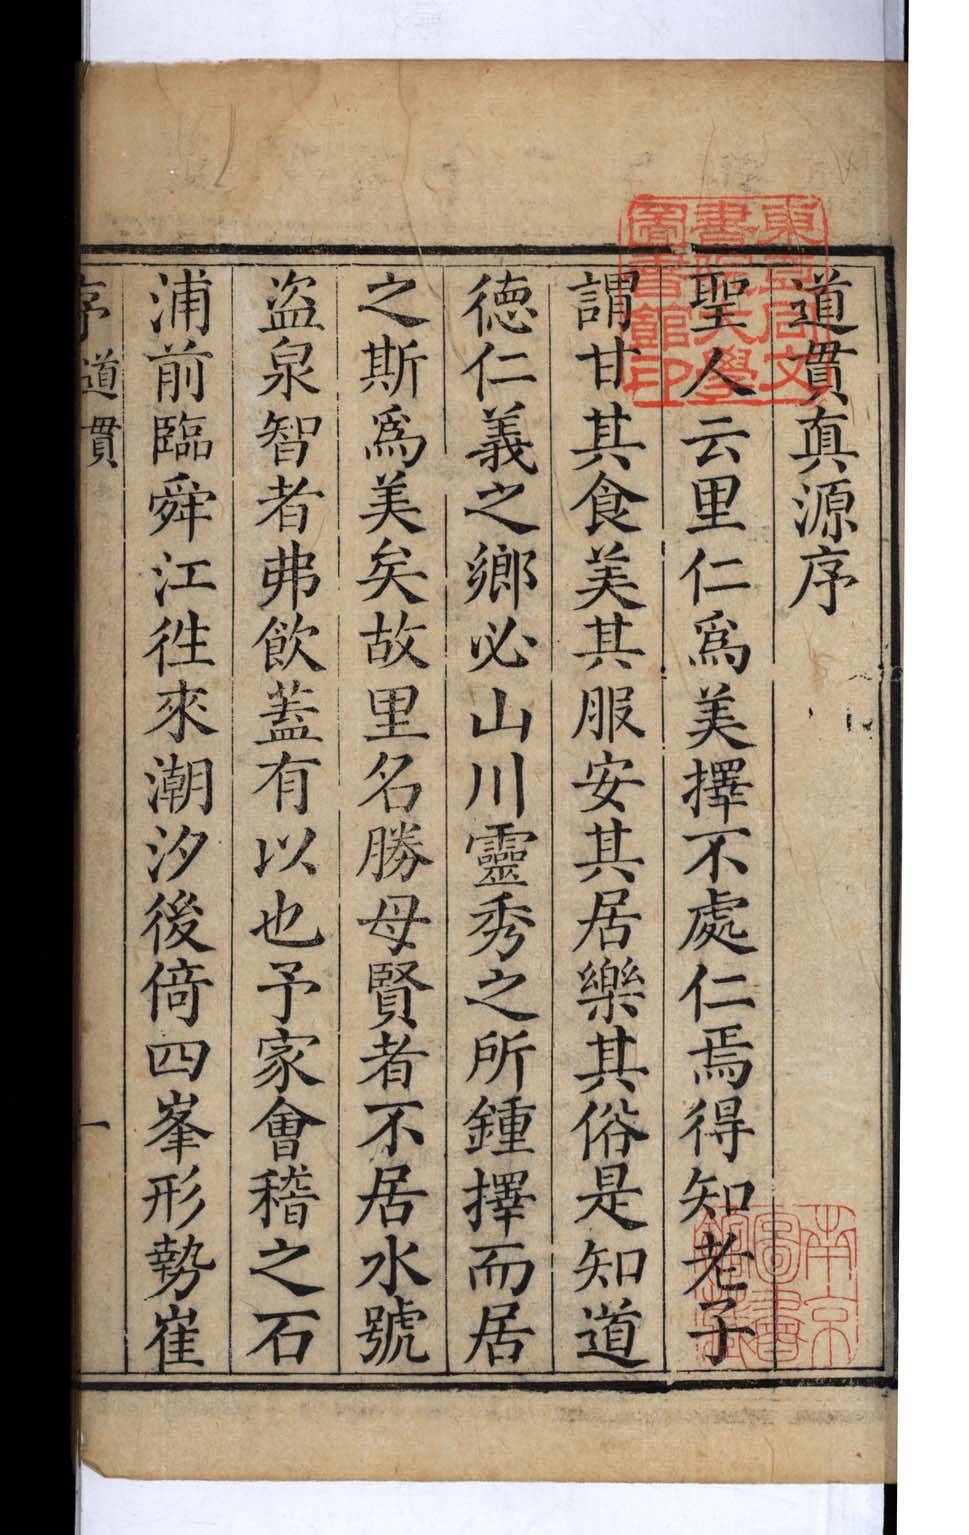 道貫真源序
聖人云里仁爲美擇不處仁焉得知老子
謂甘其食美其服安其居樂其俗是知道
德仁義之鄉必山川靈秀之所鍾擇而居
之斯爲美矣故里名勝母賢者不居水號
盗泉智者弗飲蓋有以也予家會稽之石
浦前臨舜江徃來潮汐後倚四峯形勢崔
序道貫
一
東亞同文
書院大學
圖書館印
南京
圖書
館藏